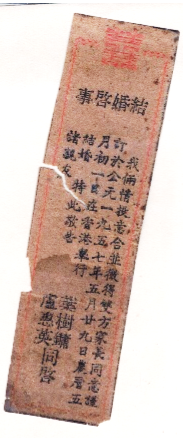 結婚啓事
我倆情投意合並徵得雙方家長同意謹
訂於公元一九五七年五月廿九日農曆五
月初一日在香港舉行
結婚 特此敬告
諸親友
葉樹鏞
盧惠英同啓